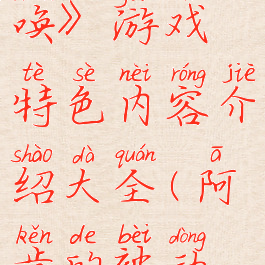 唤》游戏
tè sè nèi róng jiè
特色内容介
shào dà quán ā
绍大全(阿
kěn de bèi dòng
肯的被动